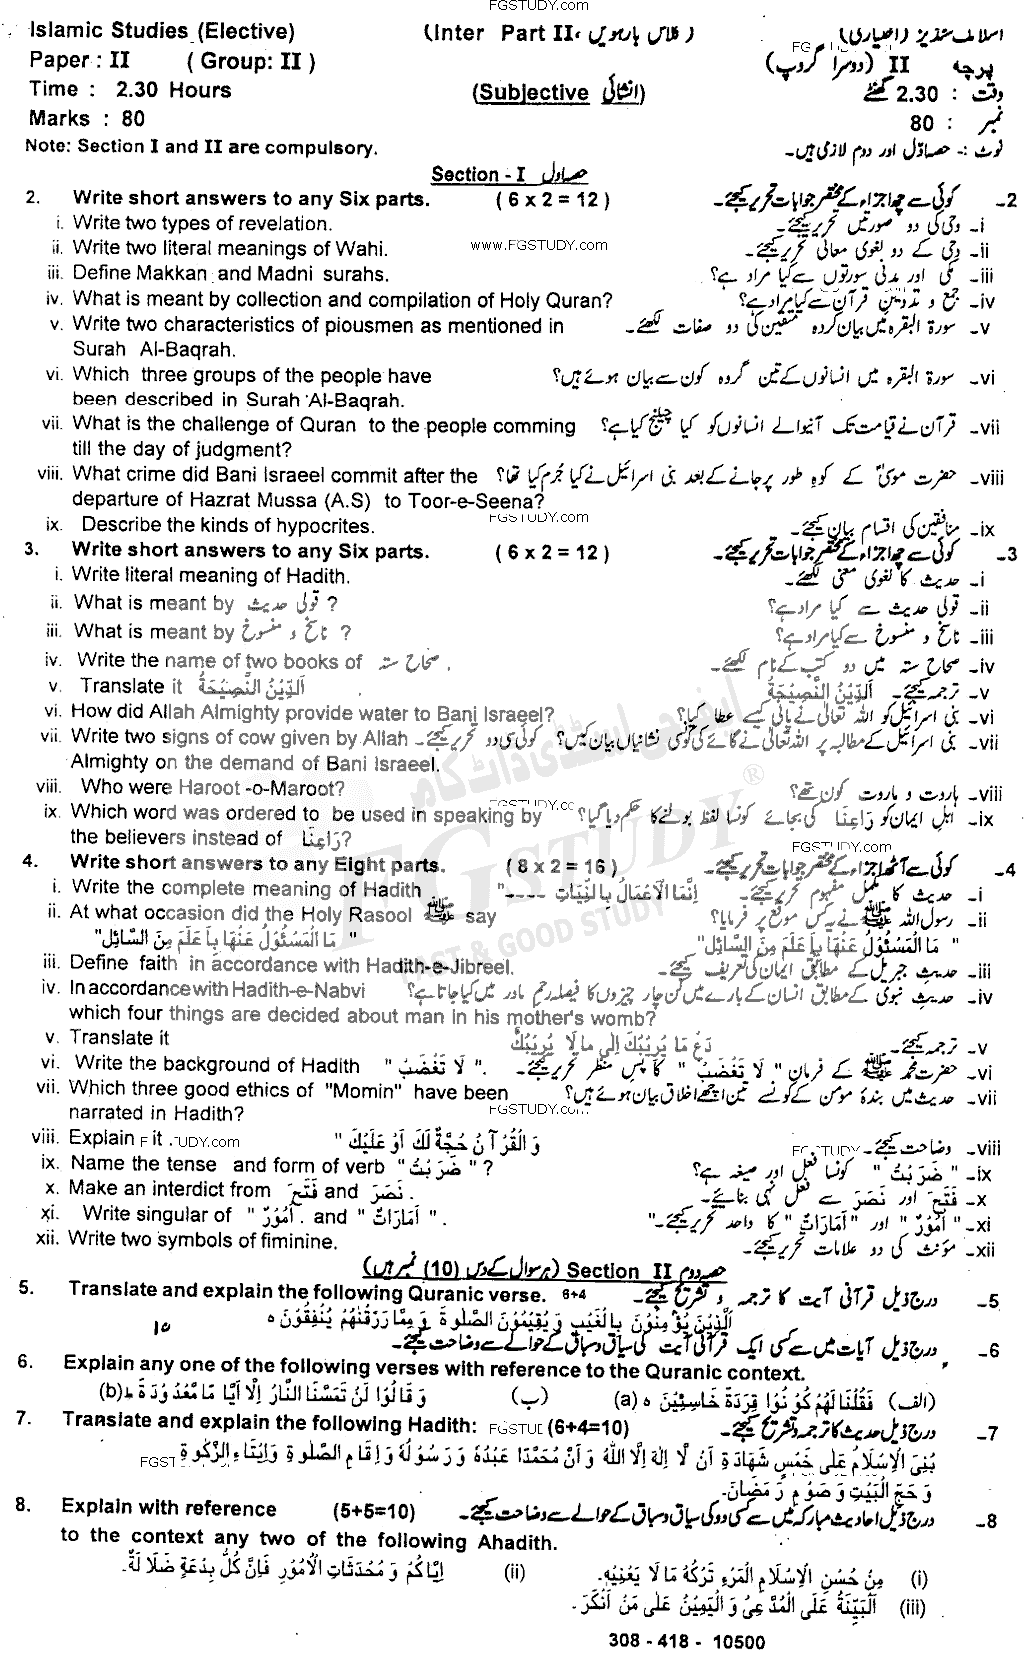 FGSTUDY.com
Islamic Studies (Elective) (Inter Part II، کلاس بارہویں) اسلامک سٹڈیز (اختیاری)
Paper : II (Group: II) پرچہ II (دوسرا گروپ)
Time : 2.30 Hours (Subjective انشائی) وقت : 2.30 گھنٹے
Marks : 80 نمبر : 80
Note: Section I and II are compulsory. نوٹ :۔ حصہ اول اور دوم لازمی ہیں۔
Section - I حصہ اول
2. Write short answers to any Six parts. (6 x 2 = 12) کوئی سے چھ اجزاء کے مختصر جوابات تحریر کیجئے۔ -2
i. Write two types of revelation. i۔ وحی کی دو صورتیں تحریر کیجئے۔
ii. Write two literal meanings of Wahi. www.FGSTUDY.com ii۔ وحی کے دو لغوی معانی تحریر کیجئے۔
iii. Define Makkan and Madni surahs. iii۔ مکی اور مدنی سورتوں سے کیا مراد ہے؟
iv. What is meant by collection and compilation of Holy Quran? iv۔ جمع و تدوین قرآن سے کیا مراد ہے؟
v. Write two characteristics of piousmen as mentioned in v۔ سورۃ البقرہ میں بیان کردہ متقین کی دو صفات لکھئے۔
Surah Al-Baqrah.
vi. Which three groups of the people have vi۔ سورۃ البقرہ میں انسانوں کے تین گروہ کون سے بیان ہوئے ہیں؟
been described in Surah 'Al-Baqrah.
vii. What is the challenge of Quran to the people comming vii۔ قرآن نے قیامت تک آنیوالے انسانوں کو کیا چیلنج کیا ہے؟
till the day of judgment?
viii. What crime did Bani Israeel commit after the viii۔ حضرت موسیٰؑ کے کوہِ طور پر جانے کے بعد بنی اسرائیل نے کیا جُرم کیا تھا؟
departure of Hazrat Mussa (A.S) to Toor-e-Seena?
FGSTUDY.com
ix. Describe the kinds of hypocrites. ix۔ منافقین کی اقسام بیان کیجئے۔
3. Write short answers to any Six parts. (6 x 2 = 12) کوئی سے چھ اجزاء کے مختصر جوابات تحریر کیجئے۔ -3
i. Write literal meaning of Hadith. i۔ حدیث کا لغوی معنی لکھئے۔
ii. What is meant by قولی حدیث ? ii۔ قولی حدیث سے کیا مراد ہے؟
iii. What is meant by ناسخ و منسوخ ? iii۔ ناسخ و منسوخ سے کیا مراد ہے؟
iv. Write the name of two books of صحاح ستہ . iv۔ صحاح ستہ میں دو کتب کے نام لکھئے۔
v. Translate it اَلدِّیْنُ النَّصِیْحَةُ v۔ ترجمہ کیجئے۔ اَلدِّیْنُ النَّصِیْحَةُ
vi. How did Allah Almighty provide water to Bani Israeel? vi۔ بنی اسرائیل کو اللہ تعالیٰ نے پانی کیسے عطا کیا؟
vii. Write two signs of cow given by Allah vii۔ بنی اسرائیل کے مطالبہ پر اللہ تعالیٰ نے گائے کی کونسی نشانیاں بیان کیں؟ کوئی سی دو تحریر کیجئے۔
Almighty on the demand of Bani Israeel.
viii. Who were Haroot -o-Maroot? viii۔ ہاروت و ماروت کون تھے؟
ix. Which word was ordered to be used in speaking by ix۔ اہلِ ایمان کو رَاعِنَا کی بجائے کونسا لفظ بولنے کا حکم دیا گیا؟
the believers instead of رَاعِنَا?
4. Write short answers to any Eight parts. (8 x 2 = 16) کوئی سے آٹھ اجزاء کے مختصر جوابات تحریر کیجئے۔ -4
i. Write the complete meaning of Hadith اِنَّمَا الْاَعْمَالُ بِالنِّیَاتِ ----" i۔ حدیث کا مکمل مفہوم تحریر کیجئے۔
ii. At what occasion did the Holy Rasool ﷺ say ii۔ رسول اللہ ﷺ نے یہ کس موقع پر فرمایا؟
" مَا الْمَسْئُوْلُ عَنْهَا بِاَعْلَمَ مِنَ السَّائِل" " مَا الْمَسْئُوْلُ عَنْهَا بِاَعْلَمَ مِنَ السَّائِلِ"
iii. Define faith in accordance with Hadith-e-Jibreel. iii۔ حدیثِ جبریل کے مطابق ایمان کی تعریف کیجئے۔
iv. In accordance with Hadith-e-Nabvi iv۔ حدیثِ نبوی کے مطابق انسان کے بارے میں کن چار چیزوں کا فیصلہ رحمِ مادر میں کیا جاتا ہے؟
which four things are decided about man in his mother's womb?
v. Translate it دَعْ مَا یُرِیْبُكَ اِلٰی مَا لَا یُرِیْبُكَ v۔ ترجمہ کیجئے۔
vi. Write the background of Hadith " لَا تَغْضَبْ ". vi۔ حضرت محمد ﷺ کے فرمان " لَا تَغْضَبْ " کا پس منظر تحریر کیجئے۔
vii. Which three good ethics of "Momin" have been vii۔ حدیث میں بندۂ مومن کے کونسے تین اچھے اخلاق بیان ہوئے ہیں؟
narrated in Hadith? FGSTUDY.com
viii. Explain it. وَ الْقُرْآنُ حُجَّةٌ لَكَ اَوْ عَلَیْكَ " viii۔ وضاحت کیجئے۔
ix. Name the tense and form of verb " ضَرَبْتُ "? ix۔ " ضَرَبْتُ " کونسا فعل اور صیغہ ہے؟
x. Make an interdict from فَتَحَ and نَصَرَ . x۔ فَتَحَ اور نَصَرَ سے فعل نہی بنائیے۔
xi. Write singular of " اُمُوْرٌ . and " اَمَارَاتٌ ". xi۔ " اُمُوْرٌ " اور " اَمَارَاتٌ " کا واحد تحریر کیجئے۔"
xii. Write two symbols of fiminine. xii۔ مؤنث کی دو علامات تحریر کیجئے۔
حصہ دوم Section II (ہر سوال کے دس (10) نمبر ہیں)
5. Translate and explain the following Quranic verse. 6+4 درج ذیل قرآنی آیت کا ترجمہ و تشریح کیجئے۔ -5
اَلَّذِیْنَ یُؤْمِنُوْنَ بِالْغَیْبِ وَ یُقِیْمُوْنَ الصَّلٰوةَ وَ مِمَّا رَزَقْنٰهُمْ یُنْفِقُوْنَ ه
10 درج ذیل آیات میں سے کسی ایک قرآنی آیت کی سیاق و سباق کے حوالے سے وضاحت کیجئے۔ -6
6. Explain any one of the following verses with reference to the Quranic context.
(الف) فَقُلْنَا لَهُمْ كُوْنُوْا قِرَدَةً خَاسِئِیْنَ ه (a) (ب) وَ قَالُوْا لَنْ تَمَسَّنَا النَّارُ اِلَّا اَیَّامًا مَّعْدُوْدَةً ط (b)
7. Translate and explain the following Hadith: (6+4=10) درج ذیل حدیث کا ترجمہ و تشریح کیجئے۔ -7
بُنِیَ الْاِسْلَامُ عَلٰی خَمْسٍ شَهَادَةِ اَنْ لَّا اِلٰهَ اِلَّا اللّٰهُ وَ اَنَّ مُحَمَّدًا عَبْدُهٗ وَ رَسُوْلُهٗ وَ اِقَامِ الصَّلٰوةِ وَ اِیْتَاءِ الزَّكٰوةِ
وَ حَجِّ الْبَیْتِ وَ صَوْمِ رَمَضَانَ۔
8. Explain with reference (5+5=10) درج ذیل احادیث مبارکہ میں سے کسی دو کی سیاق و سباق کے حوالے سے وضاحت کیجئے۔ -8
to the context any two of the following Ahadith.
(i) مِنْ حُسْنِ الْاِسْلَامِ الْمَرْءِ تَرْكُهٗ مَا لَا یَعْنِیْهِ۔ (ii) اِیَّاكُمْ وَ مُحْدَثَاتِ الْاُمُوْرِ فَاِنَّ كُلَّ بِدْعَةٍ ضَلَالَةٌ۔
(iii) اَلْبَیِّنَةُ عَلَی الْمُدَّعِیْ وَ الْیَمِیْنُ عَلٰی مَنْ اَنْكَرَ۔
308 - 418 - 10500